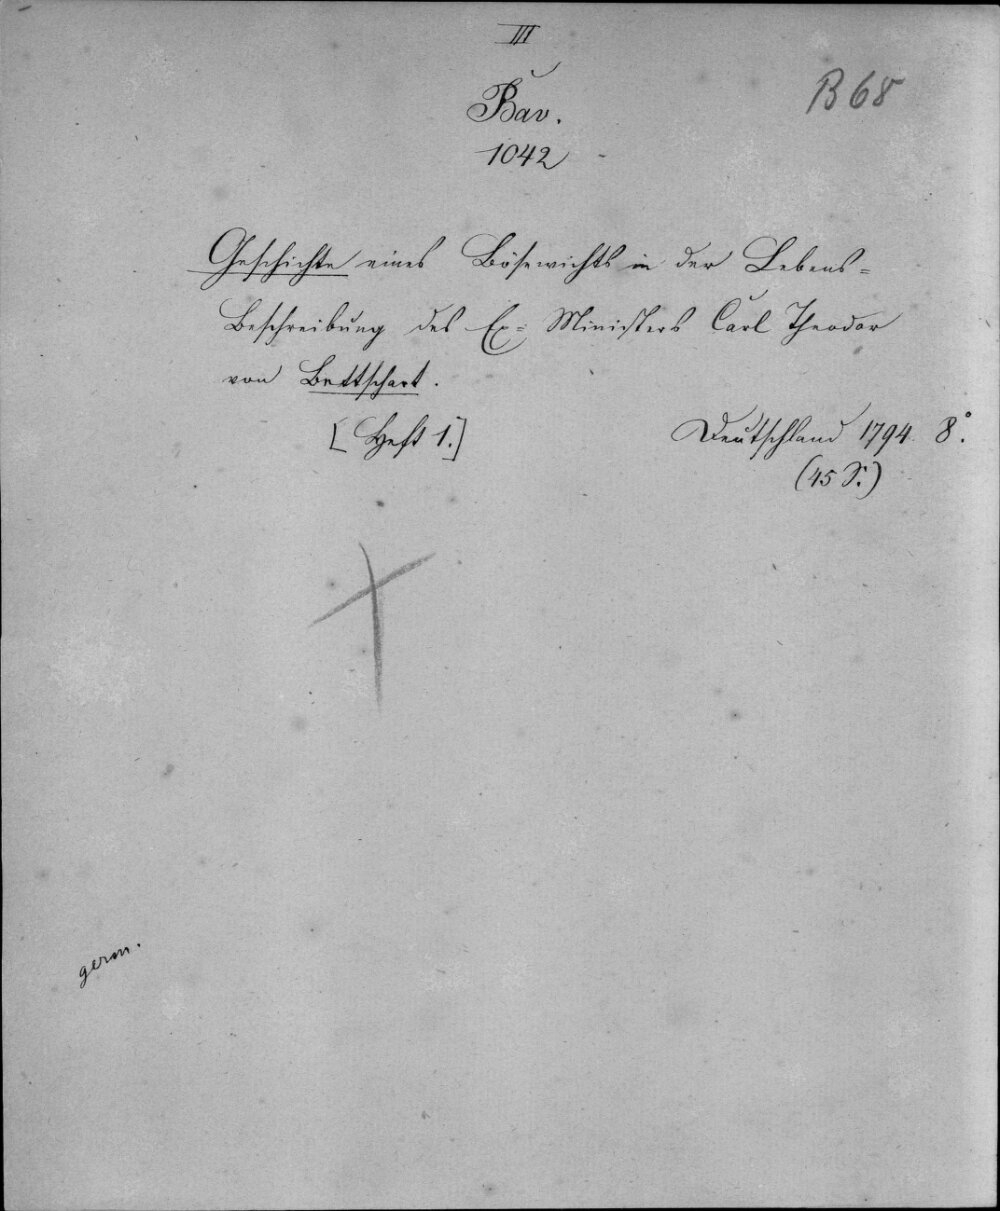 III
Bav.
1042
B 68
Geschichte eines Bösewichts in der Lebens=
Beschreibung des Ex= Ministers Carl Theodor
von Bettschart.
[Heft 1.]
Deutschland 1794. 8°.
(45 S.)
germ.